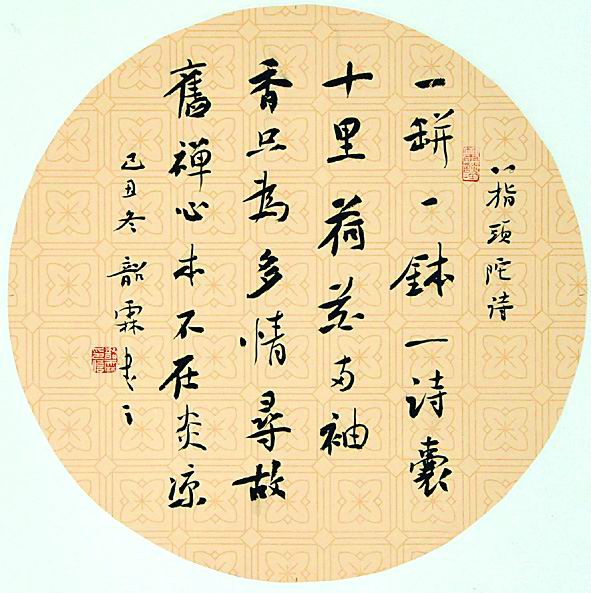 八指頭陀诗
一缾一鉢一诗囊
十里荷花两袖
香只為多情尋故
舊禅心本不在炎凉
己丑冬韶霖书之